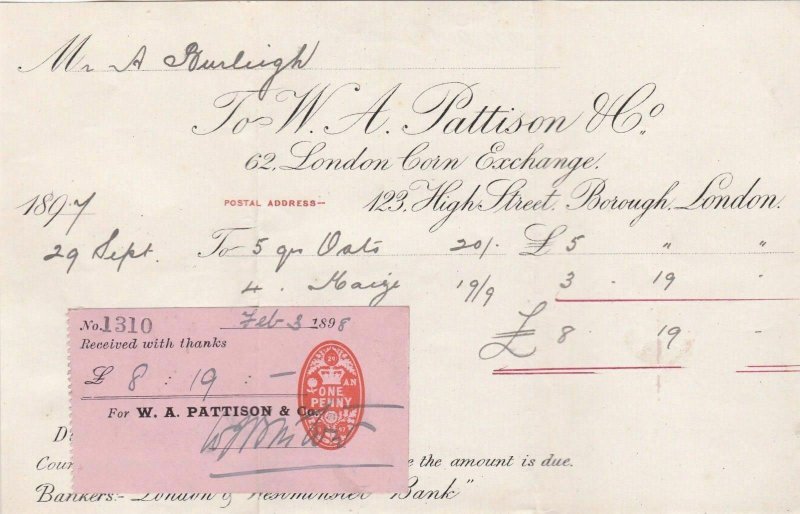 Mr A Burleigh
To W. A. Pattison & Co.
62, London Corn Exchange.
POSTAL ADDRESS— 123, High Street, Borough, London.
1897
29 Sept. To 5 qrs Oats 20/- £5 " "
4 . Maize 19/9 3 . 19 -
£ 8 19 -
No. 1310 Feb 3 1898
Received with thanks
£ 8 : 19 : -
For W. A. PATTISON & Co.
ONE
PENNY
the amount is due.
Bankers:- London & Westminster Bank"